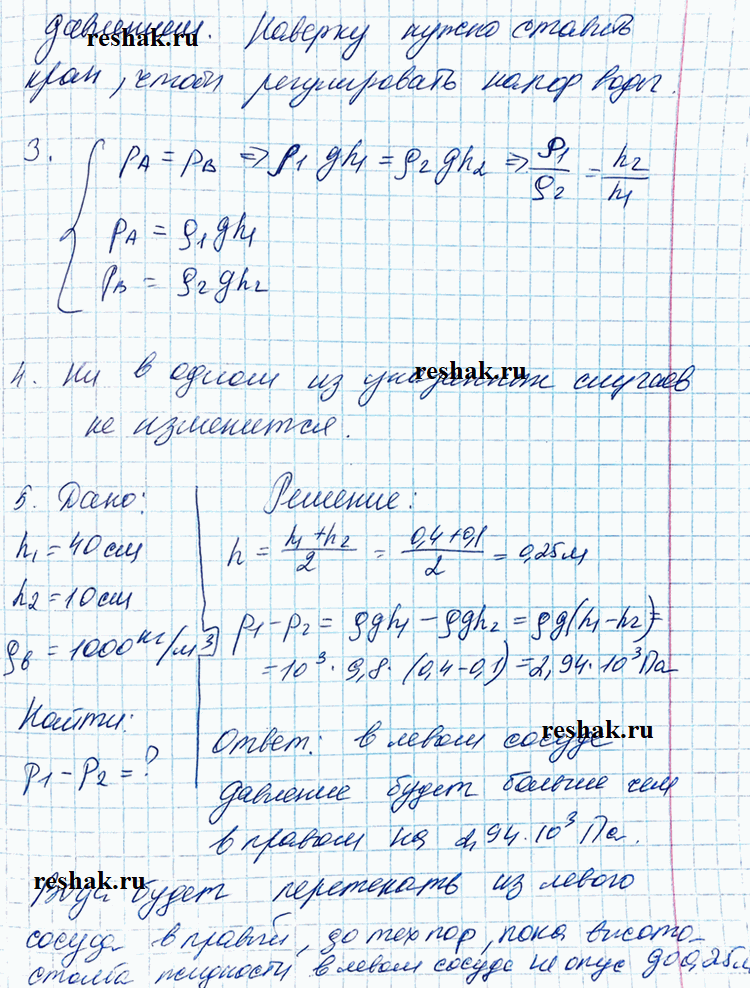 давлением. Наверху нужно ставить
reshak.ru
кран, чтобы регулировать напор воды.
3. pA = pB => ρ1 gh1 = ρ2 gh2 => ρ1/ρ2 = h2/h1
pA = ρ1gh1
pB = ρ2gh2
reshak.ru
4. Ни в одном из указанных случаев
не изменится.
5. Дано:
h1 = 40см
h2 = 10см
ρв = 1000 кг/м3
Найти:
p1 - p2 = ?
Решение:
h = (h1 + h2)/2 = (0,4+0,1)/2 = 0,25м
p1 - p2 = ρgh1 - ρgh2 = ρg(h1-h2)=
= 10³ · 9,8 · (0,4-0,1) = 2,94·10³ Па
reshak.ru
Ответ: в левом сосуде
давление будет больше чем
в правом на 2,94·10³ Па.
reshak.ru
Вода будет перетекать из левого
сосуда в правый, до тех пор, пока высота
столба жидкости в левом сосуде не опус до 0,25м